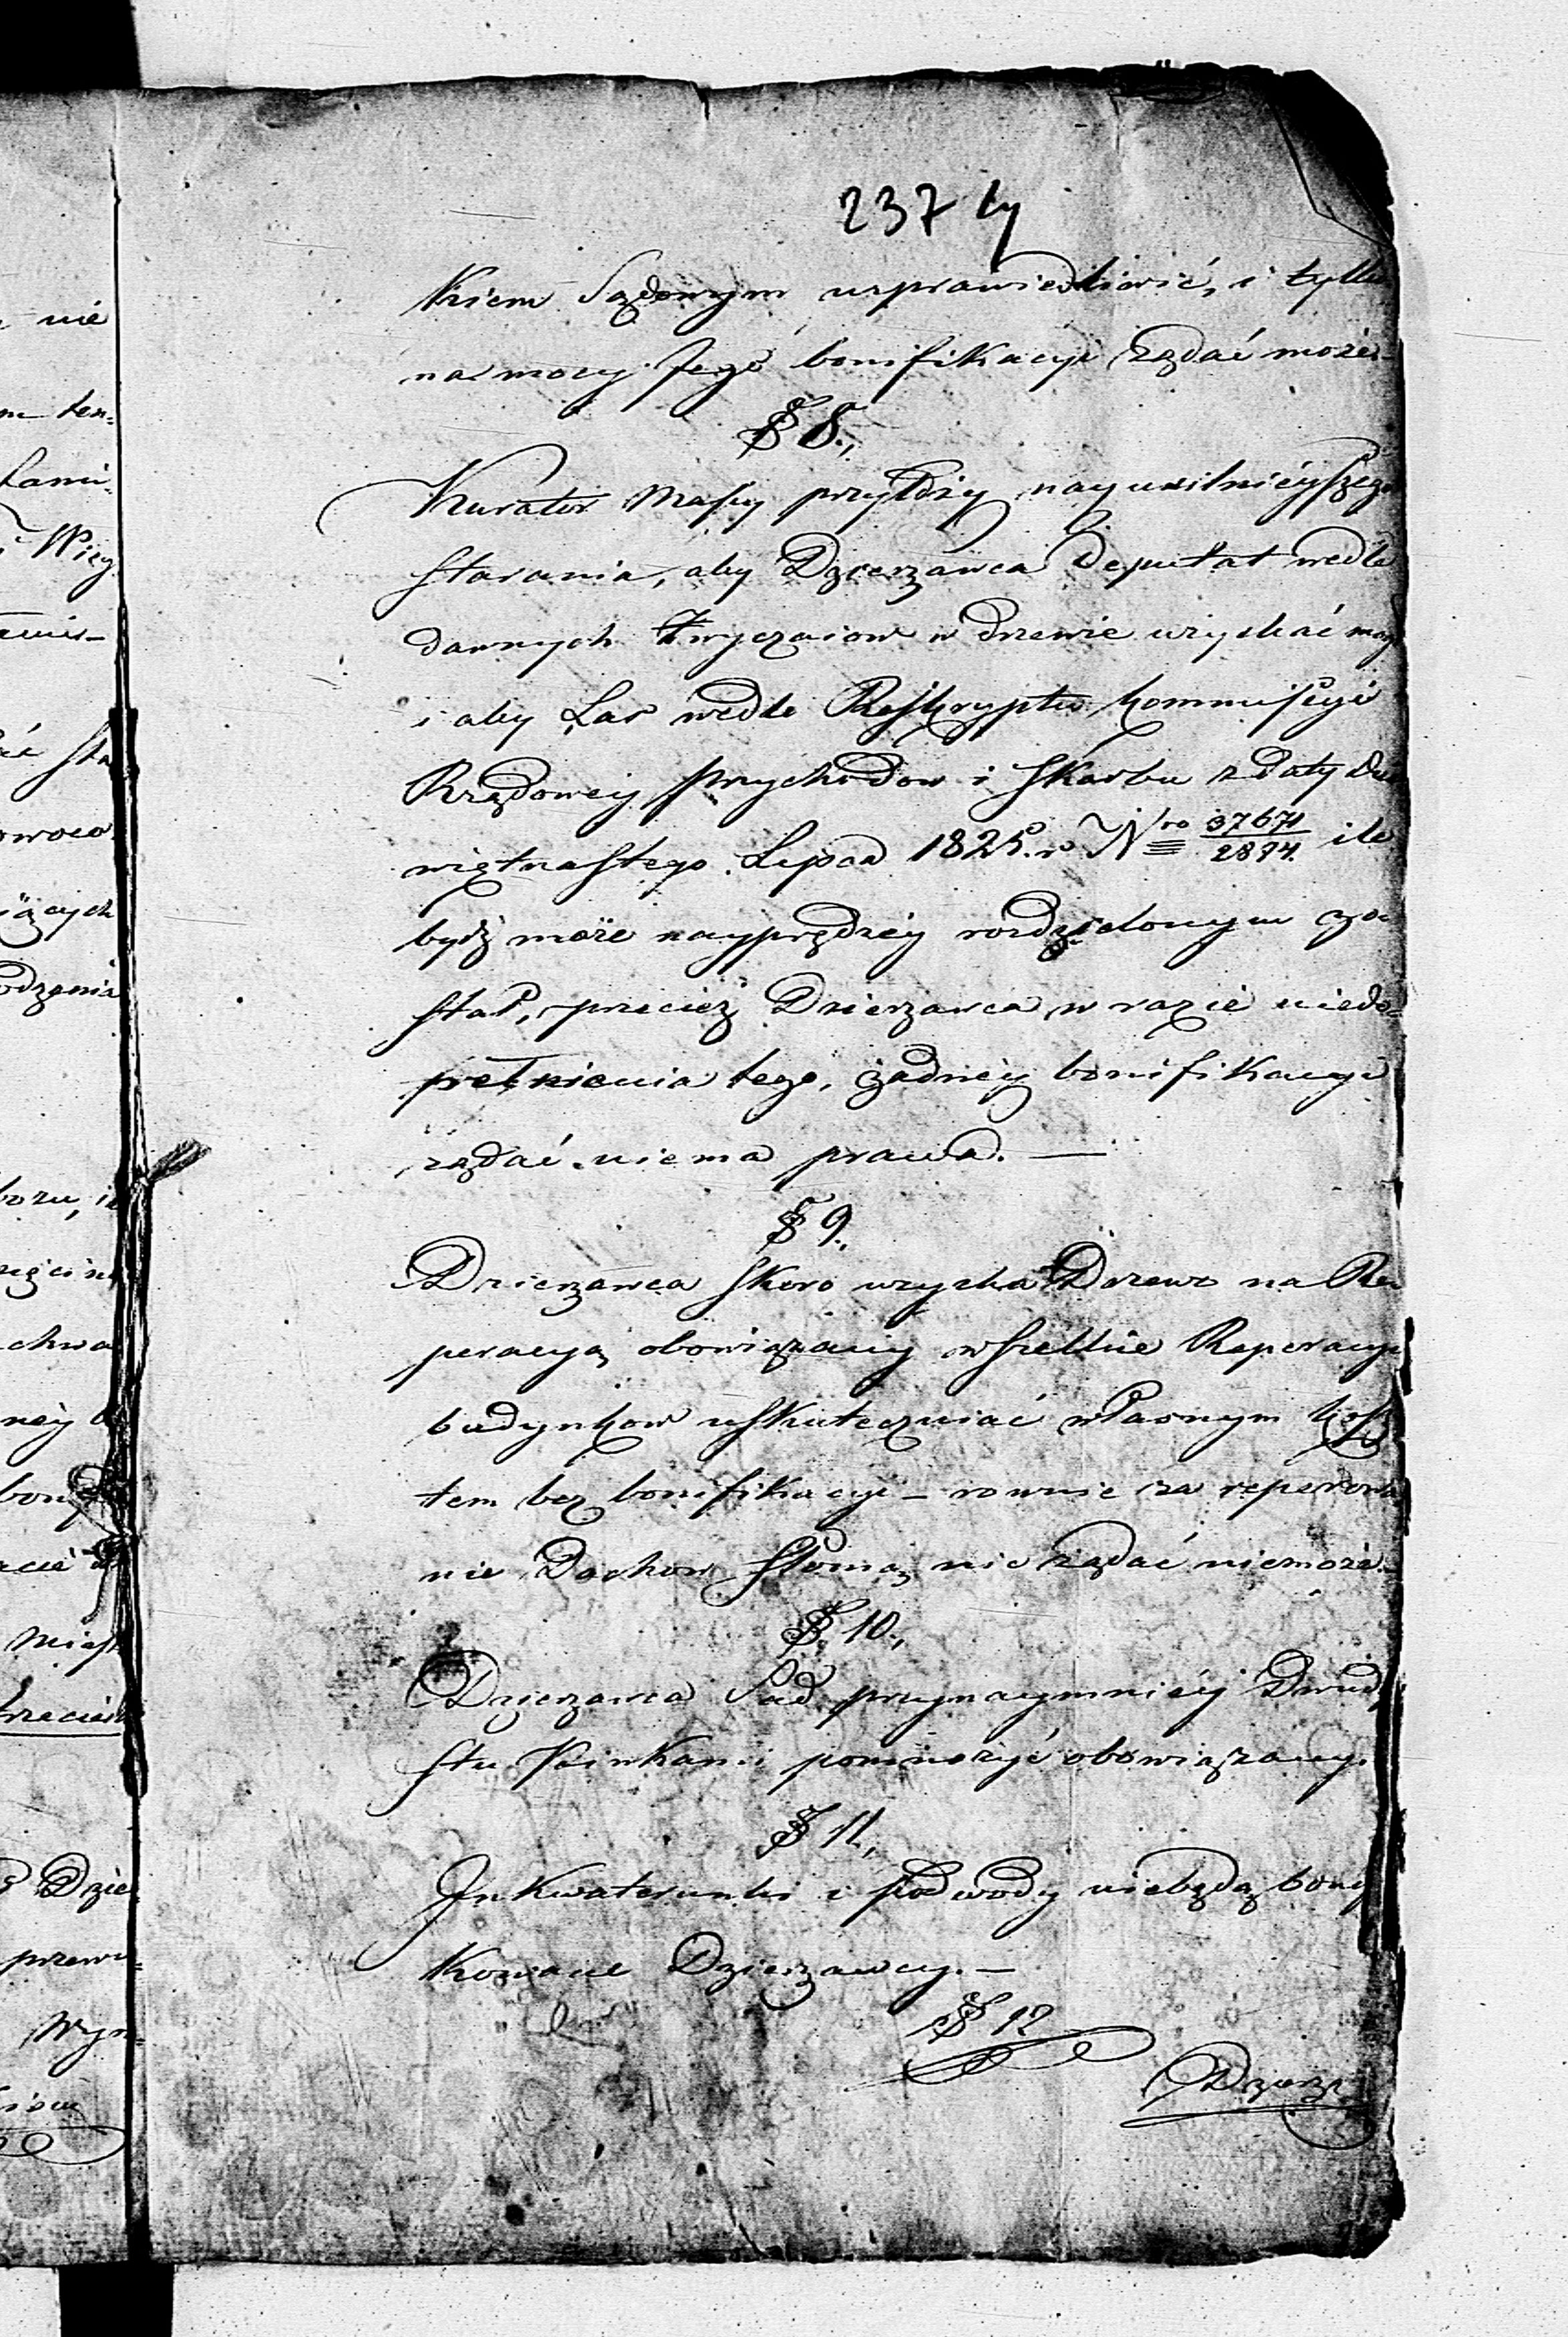 237 4
nie
kiem Sądowym usprawiedliwić, i tylko
na mocy Jego bonifikacyi żądać może.
§ 8.,
Kurator Massy przyłoży nayusilnieyszego
starania, aby Dzierzawca Deputat wedle
dawnych Zwyczaiow w drzewie uzyskać mog
i aby Las wedle Reskryptu Kommissyi
Rządowey Przychodow i Skarbu z daty dzie
więtnastego Lipca 1825. r. Nro 37671/2894. ile
bydź może nayprędzey rozdzielonym zo
stał, przecież Dzierzawca w razie niedo
pełnienia tego, żadney bonifikacyi
żądać niema prawa. —
§ 9.,
Dzierzawca skoro uzyska Drzewo na Re
peracyą obowiązany wszelkie Reperacye
budynkow uskuteczniać własnym kosz
tem bez bonifikacyi – rownie za reperowa
nie Dachow słomą nic żądać niemoże.
§ 10.,
Dzierzawca Sad przynaymniey Dwud
stu Pinkami pomnożyć obowiązany.
§ 11.,
Inkwaterunki i podwody niebędą bony
kowane Dzierzawcy. —
§ 12
Dzierz